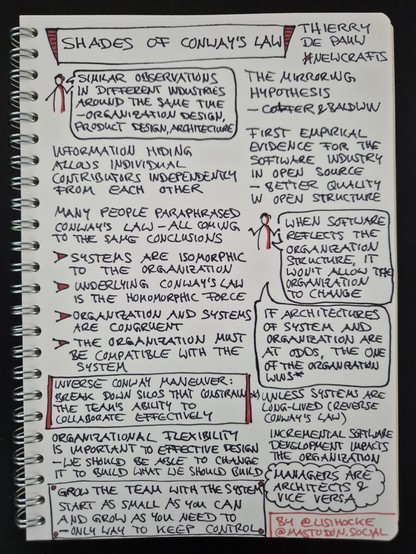 SHADES OF CONWAY'S LAW
THIERRY
DE PAUW
#NEWCRAFTS
SIMILAR OBSERVATIONS
IN DIFFERENT INDUSTRIES
AROUND THE SAME TIME
- ORGANIZATION DESIGN,
PRODUCT DESIGN, ARCHITECTURE
INFORMATION HIDING
ALLOWS INDIVIDUAL
CONTRIBUTORS INDEPENDENTLY
FROM EACH OTHER
MANY PEOPLE PARAPHRASED
CONWAY'S LAW - ALL COMING
TO THE SAME CONCLUSIONS
SYSTEMS ARE ISOMORPHIC
TO THE ORGANIZATION
UNDERLYING CONWAY'S LAW
IS THE HOMOMORPHIC FORCE
ORGANIZATION AND SYSTEMS
ARE CONGRUENT
THE ORGANIZATION MUST
BE COMPATIBLE WITH THE
SYSTEM
INVERSE CONWAY MANEUVER:
BREAK DOWN SILOS THAT CONSTRAIN
THE TEAM'S ABILITY TO
COLLABORATE EFFECTIVELY
ORGANIZATIONAL FLEXIBILITY
IS IMPORTANT TO EFFECTIVE DESIGN
- WE SHOULD BE ABLE TO CHANGE
IT TO BUILD WHAT WE SHOULD BUILD
GROW THE TEAM WITH THE SYSTEM
START AS SMALL AS YOU CAN
AND GROW AS YOU NEED TO
- ONLY WAY TO KEEP CONTROL
THE MIRRORING
HYPOTHESIS
- & BALDWIN
FIRST EMPIRICAL
EVIDENCE FOR THE
SOFTWARE INDUSTRY
IN OPEN SOURCE
- BETTER QUALITY
IN OPEN STRUCTURE
WHEN SOFTWARE
REFLECTS THE
ORGANIZATION
STRUCTURE, IT
WON'T ALLOW THE
ORGANIZATION
TO CHANGE
IF ARCHITECTURES
OF SYSTEM AND
ORGANIZATION ARE
AT ODDS, THE ONE
OF THE ORGANIZATION
WINS*
*) UNLESS SYSTEMS ARE
LONG-LIVED (REVERSE
CONWAY'S LAW)
INCREMENTAL SOFTWARE
DEVELOPMENT IMPACTS
THE ORGANIZATION
MANAGERS ARE
ARCHITECTS &
VICE VERSA
BY @LISIHOCKE
@MASTODON.SOCIAL